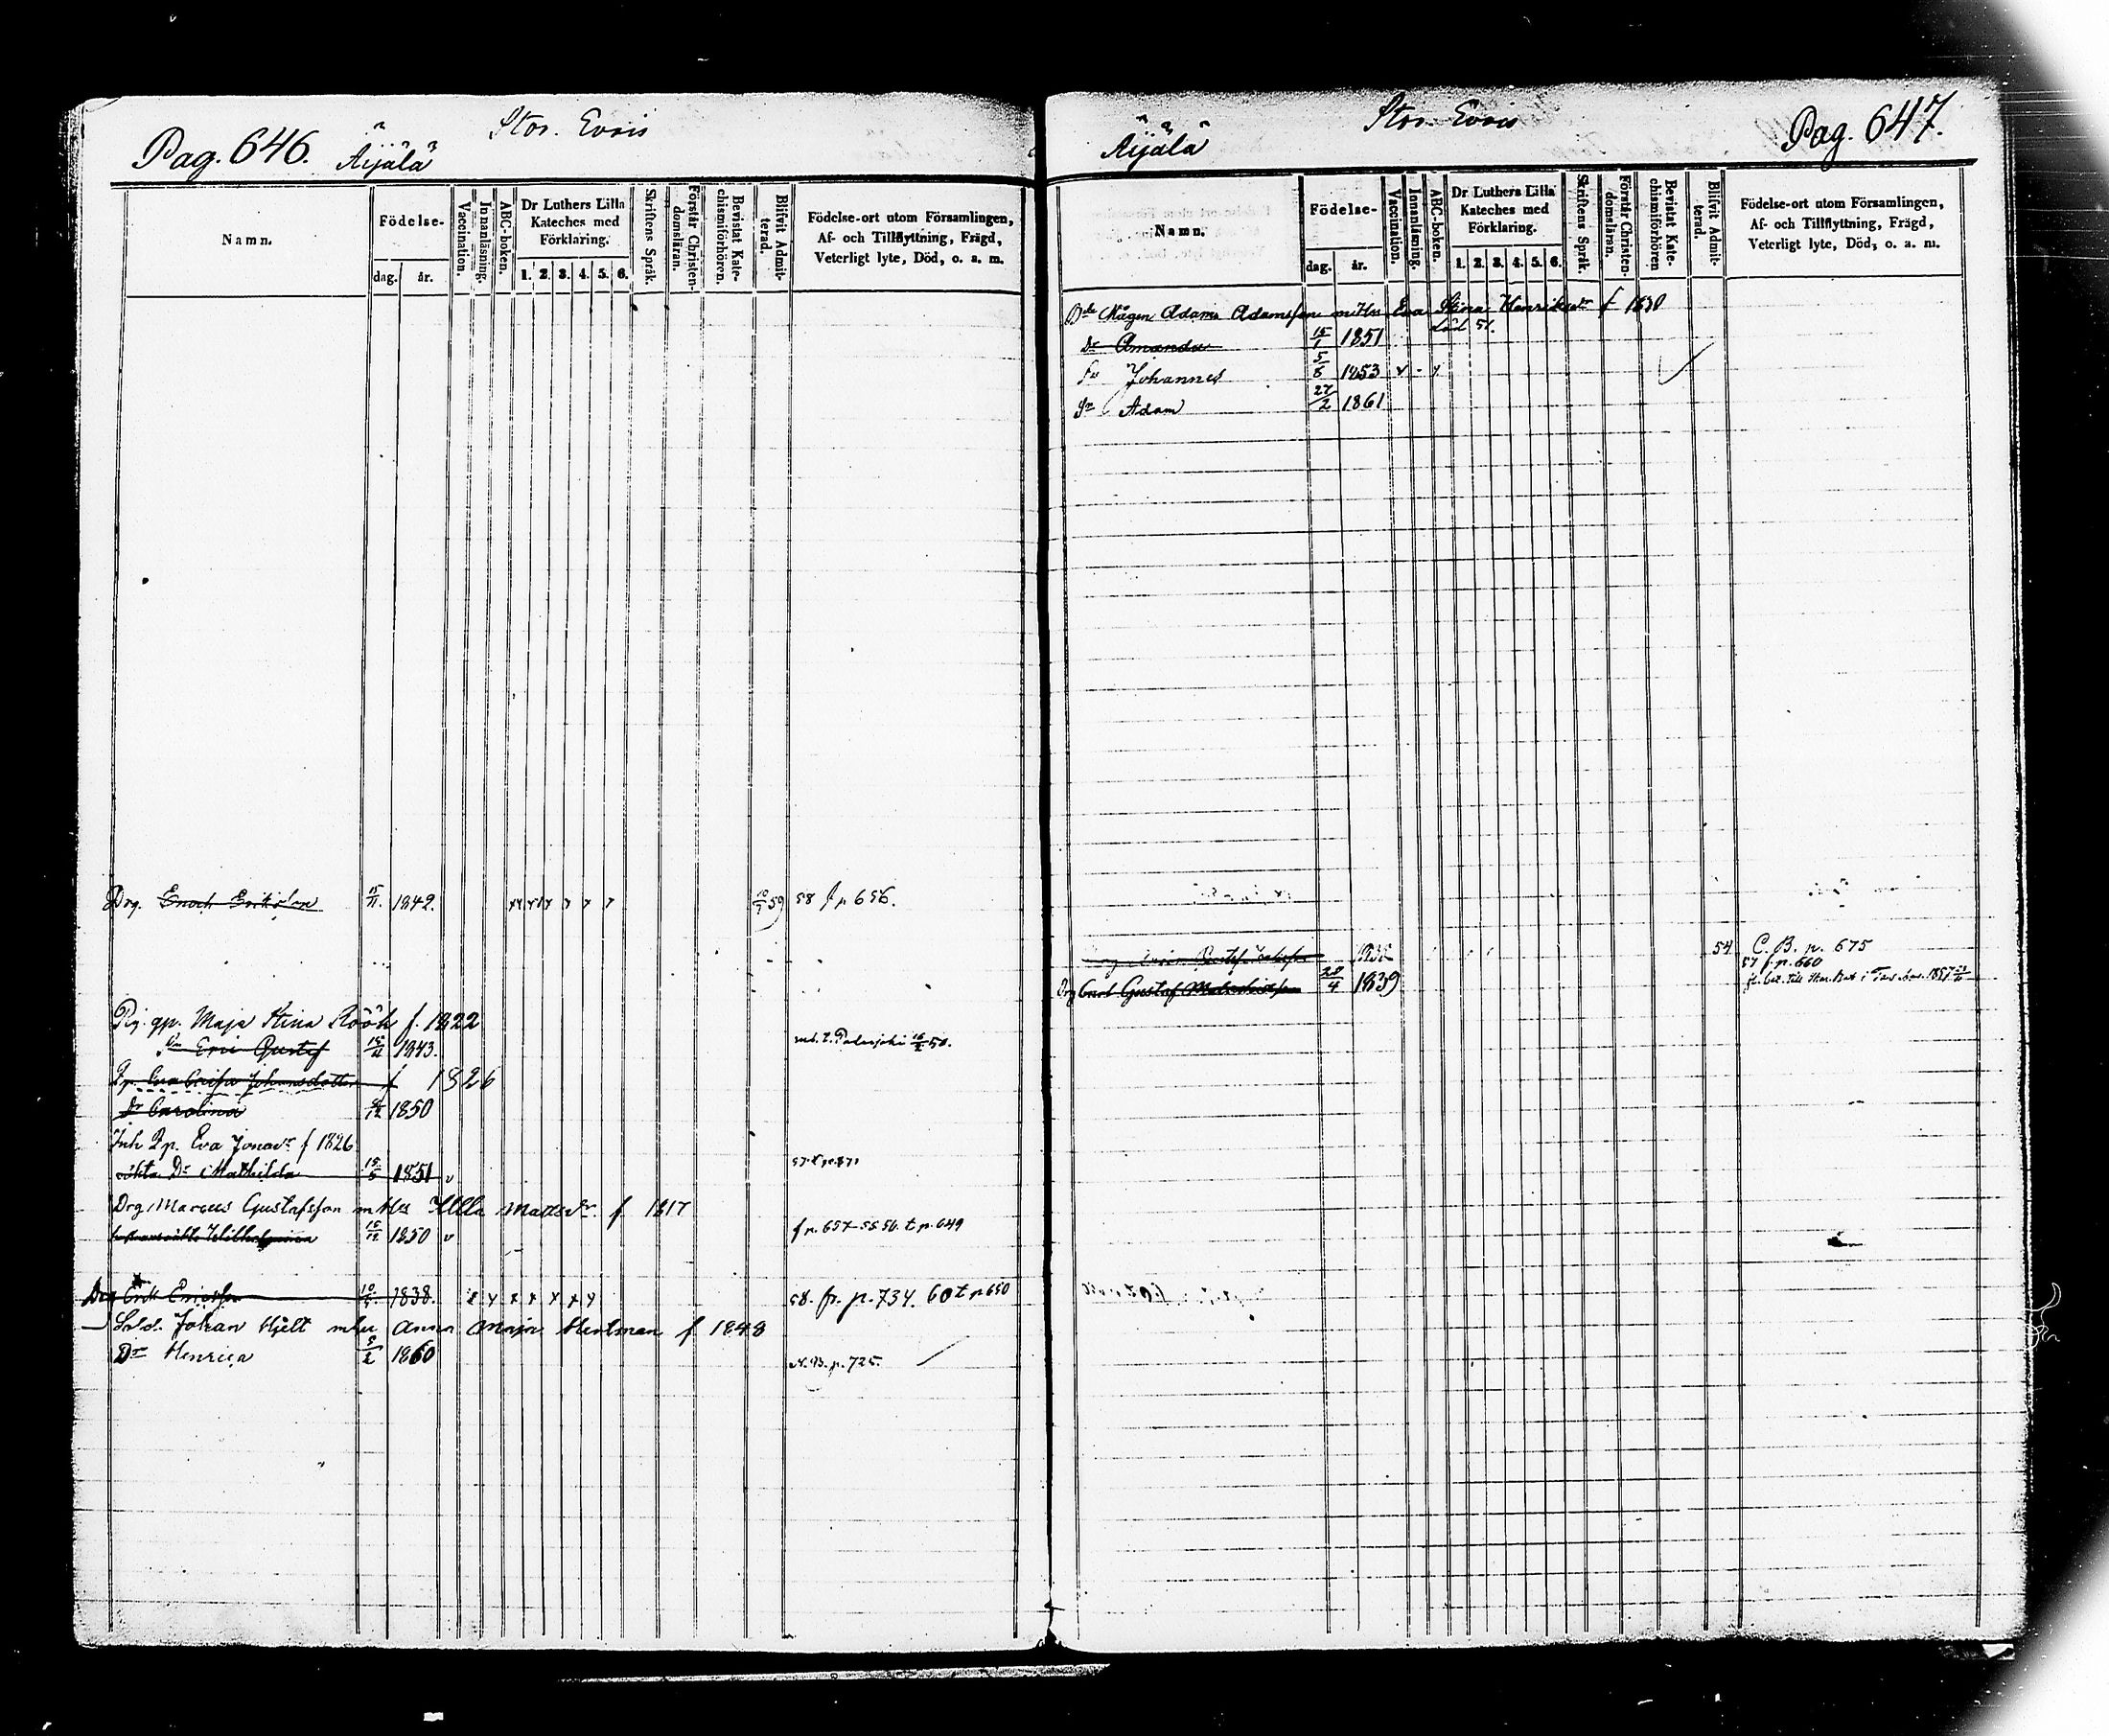 Pag. 646. Äijälä Stor. Evois
Namn.
Födelse-
dag. år.
Vaccination.
Innanläsning.
ABC-boken.
Dr Luthers Lilla Kateches med Förklaring.
1. 2. 3. 4. 5. 6.
Skriftens Språk.
Förstår Christendomsläran.
Bevistat Katechismiförhören.
Blifvit Admitterad.
Födelse-ort utom Församlingen, Af- och Tillflyttning, Frägd, Veterligt lyte, Död, o. a. m.
Drg. Enoch Eriksson 15/11. 1842. 10/7 59 58 f p 656.
Pig. qp. Maja Stina Rööh f. 1822
Sn Eric Gustaf 1843. Padasjoki 50.
Qp. Eva Johansdotter f 1826
Dr Carolina 1850
Inh Qp. Eva Jonasdr f 1826
Dr Mathilda 15/5 1851 v
Drg Marcus Gustafsson m Hu Ulla Mattsdr. f. 1817
Wilhelmina 15/12 1850 v f p. 657 55 56. t p. 649
Drg Erik Ericsson 1838. x y x x x x y 58. fr. p. 734. 60 t p 650
Sold. Johan Hjelt m hu Anna Maja Hentman f 1848
Dr Henrica 5/2 1860 N. B. p. 725.
Äijälä Stor. Evois Pag. 647.
Namn.
Födelse-
dag. år.
Vaccination.
Innanläsning.
ABC-boken.
Dr Luthers Lilla Kateches med Förklaring.
1. 2. 3. 4. 5. 6.
Skriftens Språk.
Förstår Christendomsläran.
Bevistat Katechismiförhören
Blifvit Admitterad.
Födelse-ort utom Församlingen, Af- och Tillflyttning, Frägd, Veterligt lyte, Död, o. a. m.
Mågen Adam Adamsson m Hu Eva Stina Henriksdr f 1830
Dr Amanda 15/1 1851
Sn Johannes 5/6 1853
Sn Adam 27/2 1861
54 C. B. p. 675
57 f. p. 660
Drg Carl Gustaf 28/4 1839